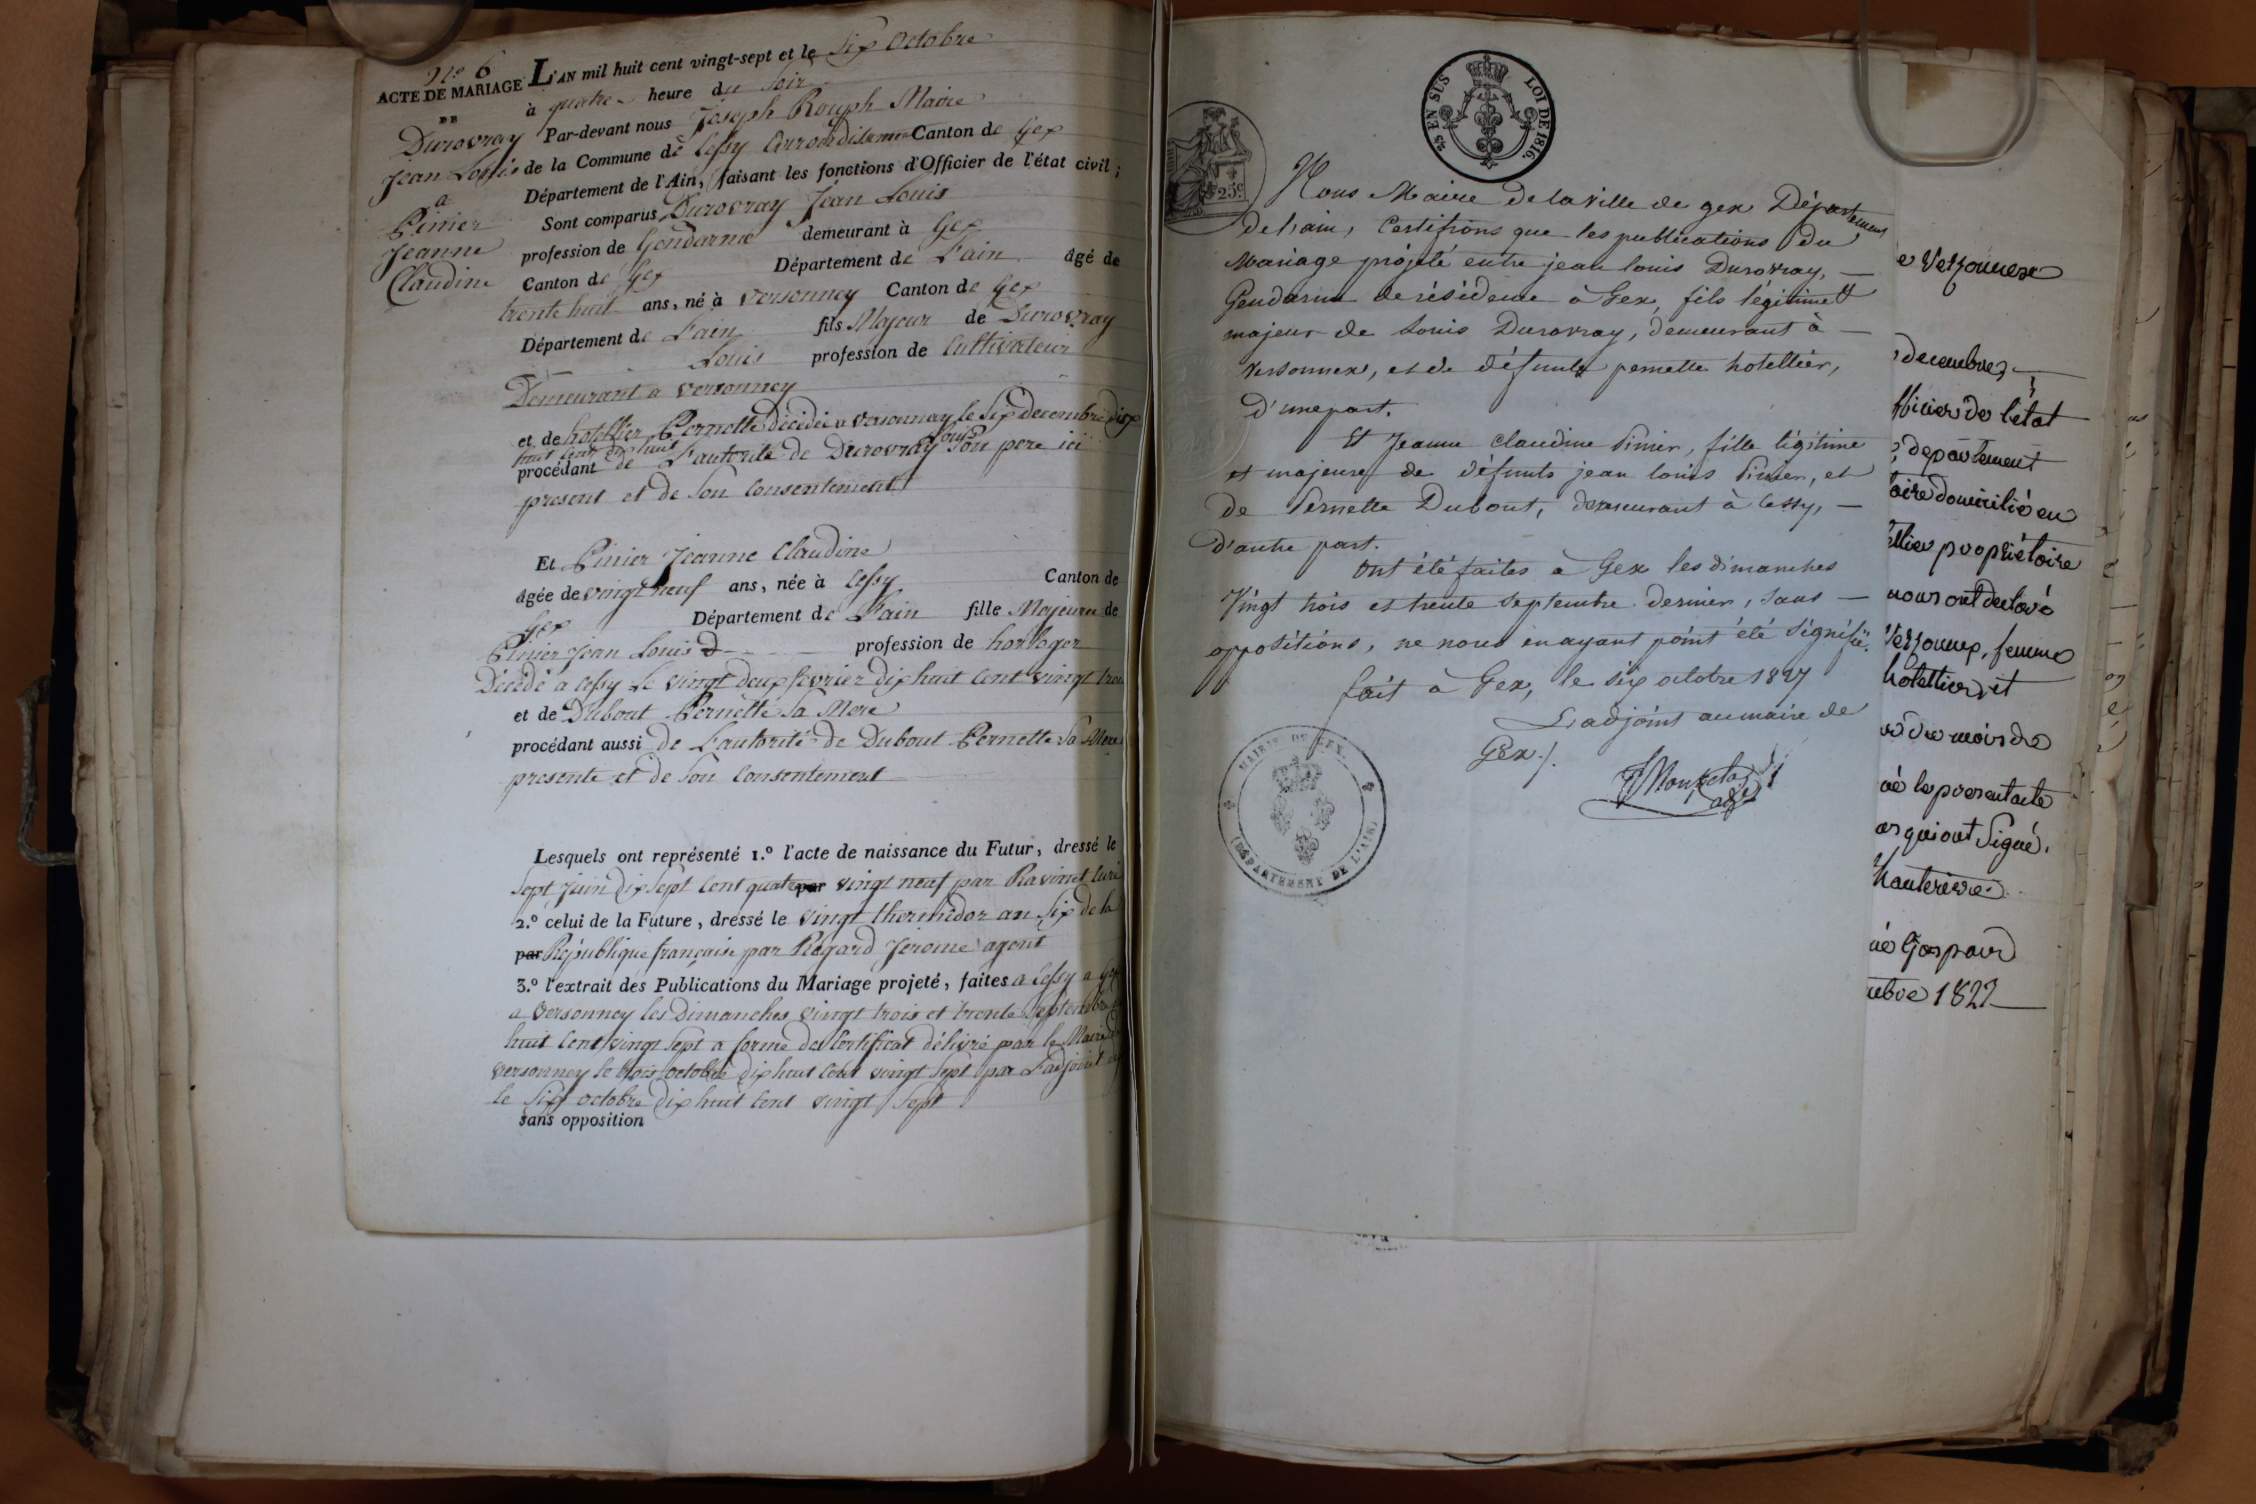 N.o 6
ACTE DE MARIAGE
DE
Durovray
Jean Louis
a
Pinier
Jeanne
Claudine
L'AN mil huit cent vingt-sept et le Six Octobre
à quatre heure du Soir
Par-devant nous Joseph Rouph Maire
de la Commune de Cessy Canton de Gex
Département de l'Ain, faisant les fonctions d'Officier de l'état civil;
Sont comparus Durovray Jean Louis
profession de Gendarme demeurant à Gex
Canton de Gex Département de L'ain âgé de
trente huit ans, né à Versonney Canton de Gex
Département de L'ain fils Majeur de Durovray
Louis profession de Cultivateur
Demeurant a versonney
et de hotellier Pernette décédée a versonnay le Six decembre dix
huit cent
procédant de L'autorité de Durovray Louis Son pere ici
present et de Son Consentement
Et Pinier Jeanne Claudine
âgée de vingt neuf ans, née à Cessy Canton de
Gex Département de L'ain fille Majeure de
Pinier Jean Louis profession de horloger
Décédé a cessy Le vingt deux fevrier dix huit Cent vingt trois
et de Dubout Pernette Sa Mere
procédant aussi de L'autorité de Dubout Pernette Sa Mere
presente et de Son Consentement
Lesquels ont représenté 1.o l'acte de naissance du Futur, dressé le
Sept Juin dix Sept Cent quatre par vingt neuf par Ravinet Curé
2.o celui de la Future, dressé le vingt thermidor an Six de la
par République française par Regard Jerome agent
3.o l'extrait des Publications du Mariage projeté, faites a Cessy a Gex
a versonney les dimanches vingt trois et trente Septembre
huit Cent vingt Sept a forme des Certificat délivré par le Maire
versonney le trois octobre dix huit Cent vingt Sept par L'adjoint
le Six octobre dix huit Cent vingt Sept
sans opposition
25 EN SUS LOI DE 1816.
25c.
Nous Maire de la ville de gex Département
de l'ain, Certifions que les publications du
Mariage projeté entre jean louis Durovray,
Gendarme de résidence à Gex, fils légitime et
majeur de Louis Durovray, demeurant à
versonnex, et de défunte pernette hotellier,
d'une part.
Et Jeanne Claudine Pinier, fille légitime
et majeure de défunts jean louis Pinier, et
de Pernette Dubout, demeurant à Cessy,
d'autre part.
Ont été faites à Gex les dimanches
Vingt trois et trente septembre dernier, sans
oppositions, ne nous en ayant point été signifié.
fait à Gex, le six octobre 1827
L'adjoint au maire de
Gex /.
MAIRIE DE GEX.
(DÉPARTEMENT DE L'AIN)
e Versonnex
decembre
fficier de l'état
departement
aire domicilié en
ellier propriétaire
nous ont declaré
Versonnex, femme
hotellier et
du mois de
le present acte
qui ont Signé.
hauterive
Gaspard
mbre 1822